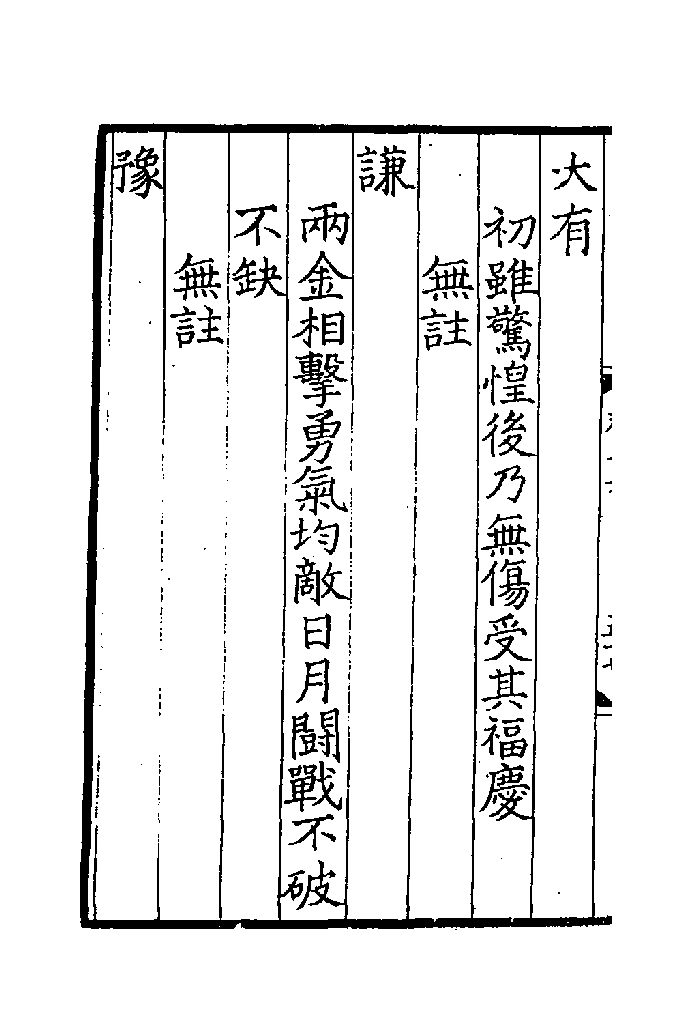 大有
初雖驚惶後乃無傷受其福慶
無註
謙
兩金相擊勇氣均敵日月鬪戰不破
不缺
無註
豫